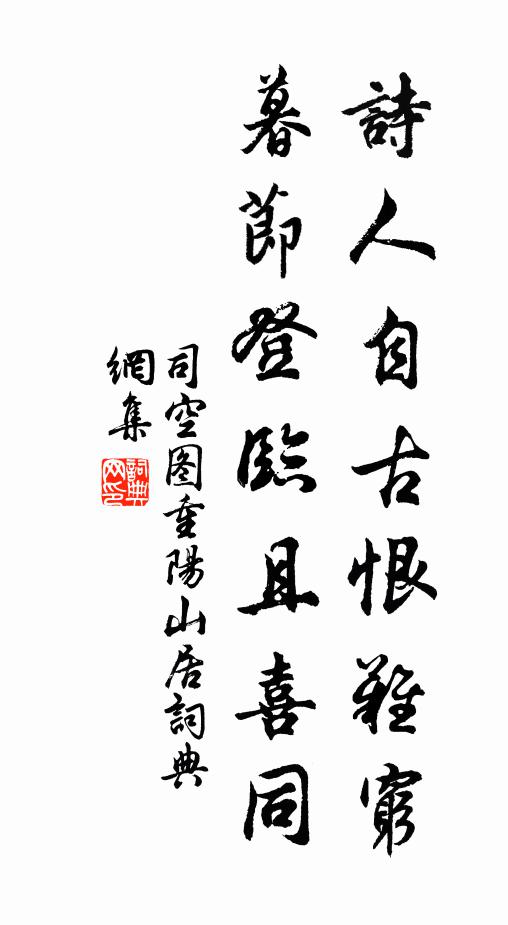 詩人自古恨難窮
暮節登臨且喜同
司空图重陽山居詞典
網集
詞典
网印